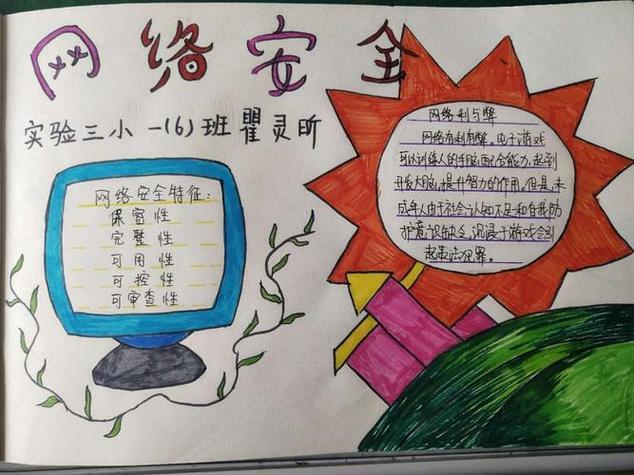 网络安全
实验三小 一(6)班 瞿灵昕
网络安全特征:
保密性
完整性
可用性
可控性
可审查性
网络利与弊
网络有利有弊,电子游戏
可以训练人的手脑配合能力,起到
开发大脑,提升智力的作用。但是,未
成年人由于社会认知不足和自我防
护意识缺乏,沉浸于游戏会引
起违法犯罪。